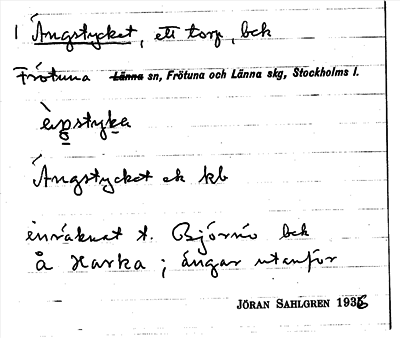 1 Ängstycket, ett torp, bek
Frötuna Länna sn, Frötuna och Länna skg, Stockholms l.
Ängstycket ek kb
inräknat t. Björnö bek
å Harka ; ängar utanför
JÖRAN SAHLGREN 1936